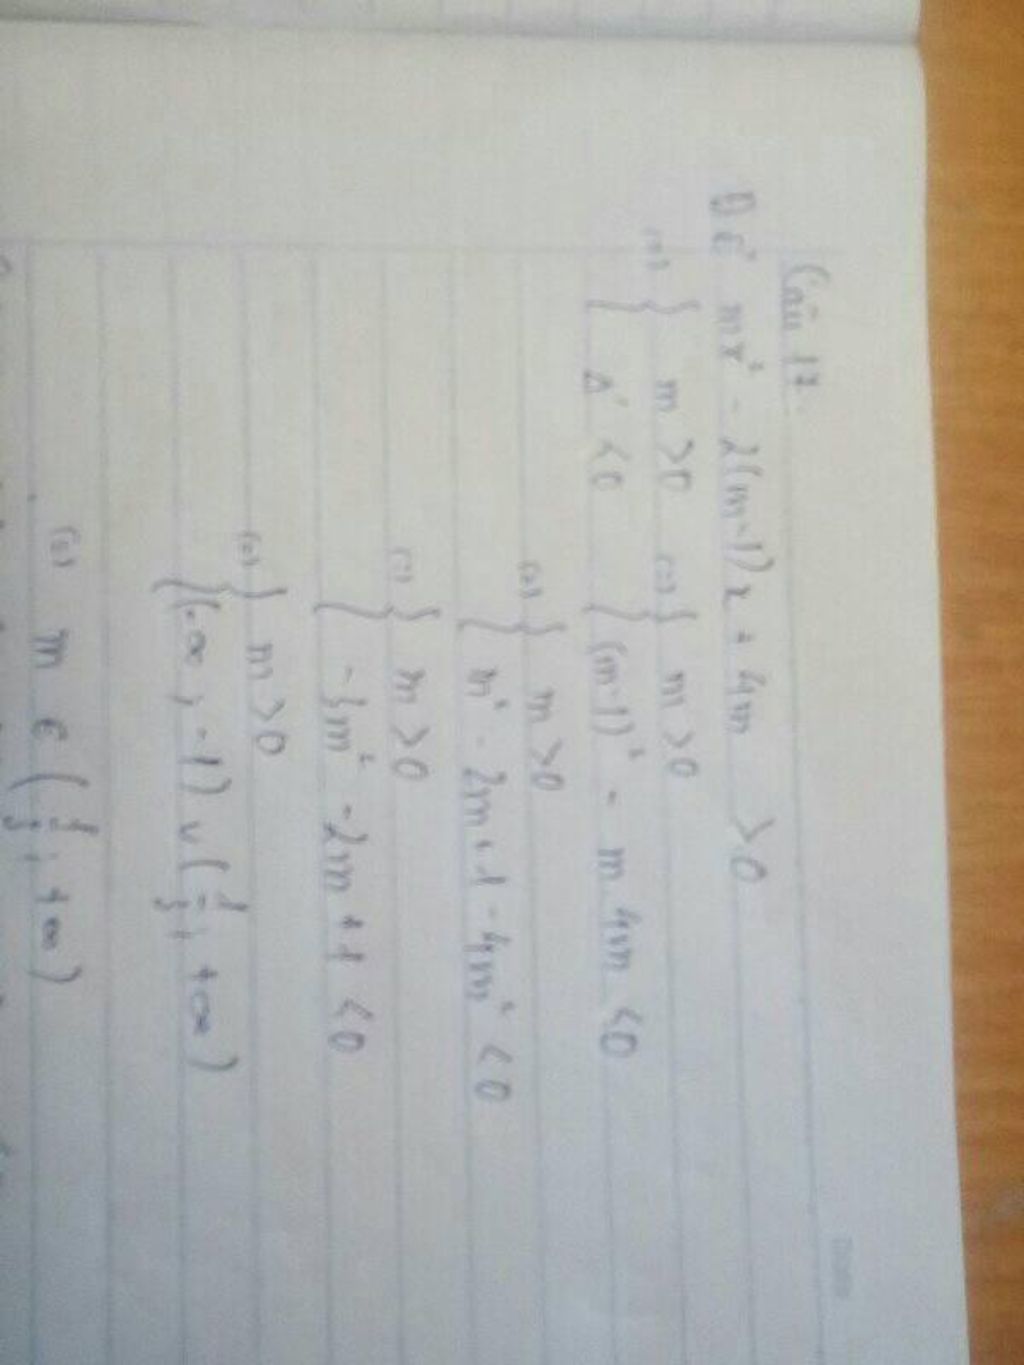 Câu 17.
Để mx² - 2(m-1)x + 4m > 0
(=) { m > 0 (=) { m > 0
{ Δ' < 0 { (m-1)² - m.4m < 0
(=) { m > 0
{ m² - 2m + 1 - 4m² < 0
(=) { m > 0
{ -3m² - 2m + 1 < 0
(=) { m > 0
{ (-∞; -1) ∪ (1/3; +∞)
(=) m ∈ (1/3; +∞)